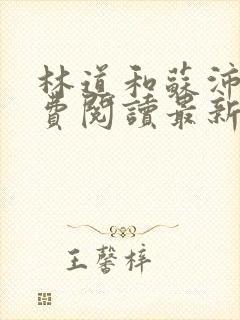 林道和蘇沛
費閱讀最新
王馨梓